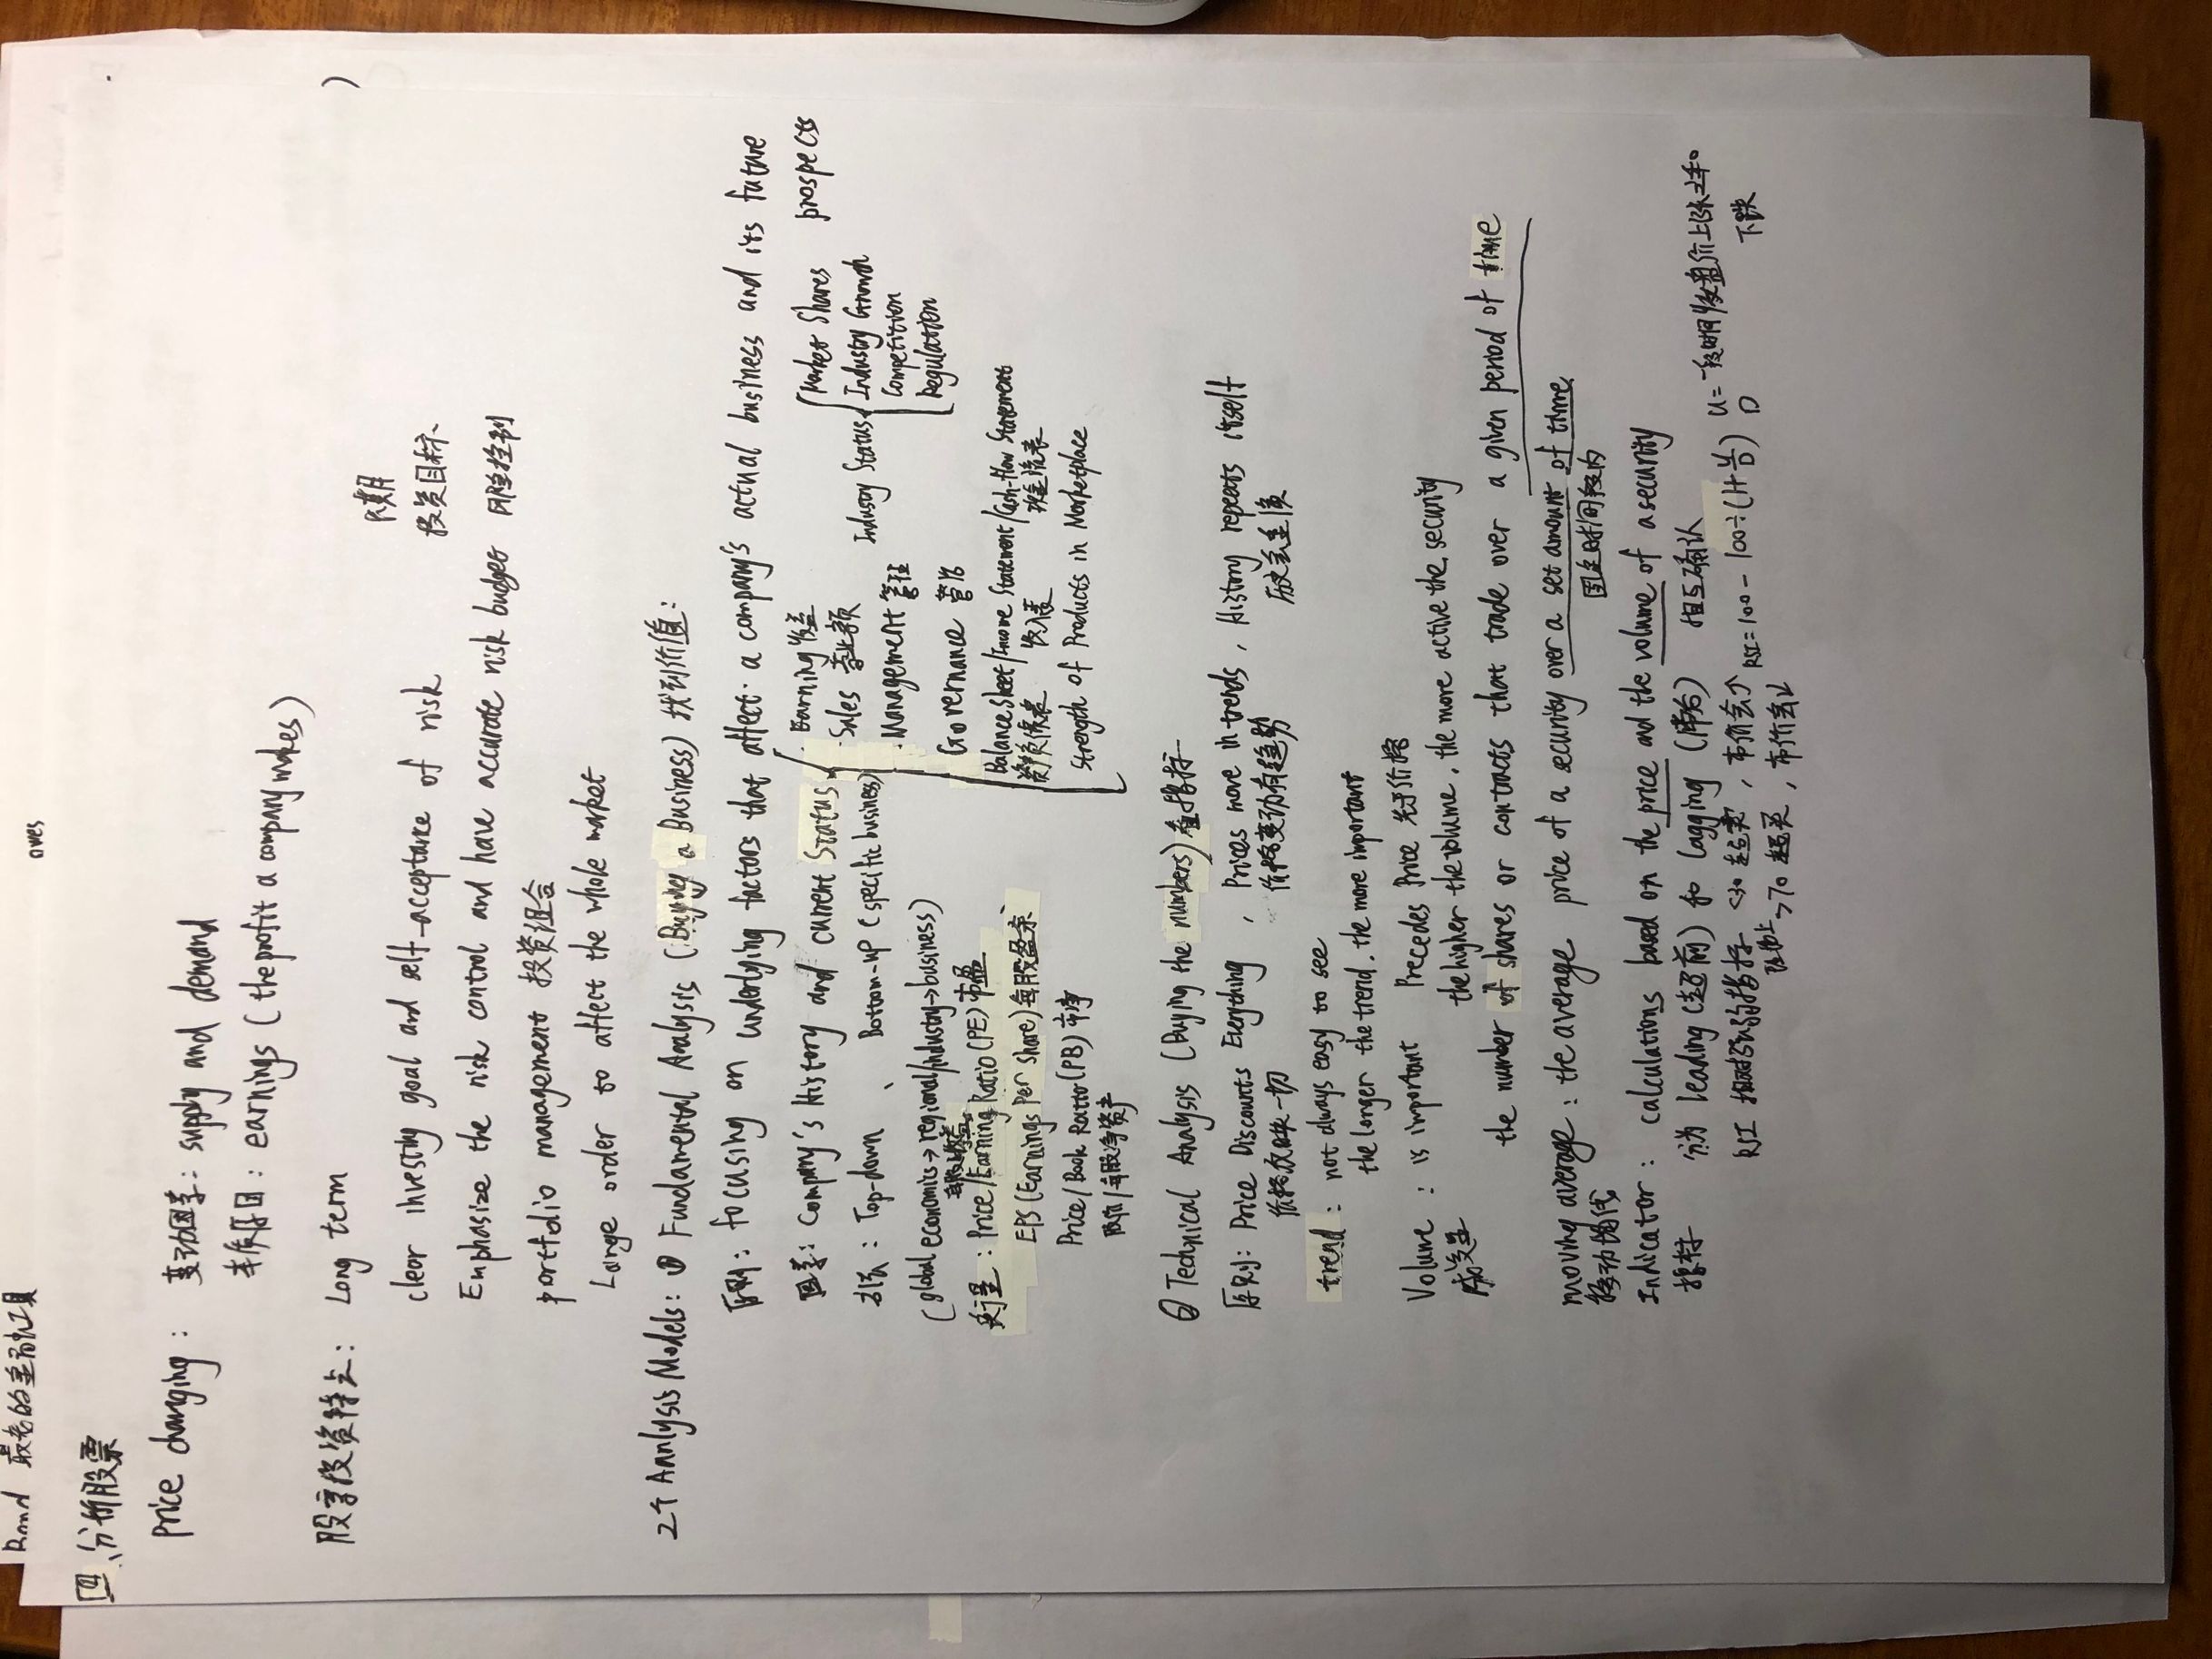 Bond 最老的金融工具
owes
四、分析股票
price changing : 变动因素: supply and demand
本质原因: earnings ( the profit a company makes )
股票投资特点: Long term
长期
clear investing goal and self-acceptance of risk 投资目标
Emphasize the risk control and have accurate risk budget 风险控制
portfolio management 投资组合
Large order to affect the whole market
2个 Aanlysis Models: ① Fundamental Analysis (Buying a Business) 找到价值:
原则: focusing on underlying factors that affect a company's actual business and its future prospects
因素: Company's History and current Status
· Earning 收益
· Sales 营业额
· Management 管理
Governance 管治
Balance Sheet / Income Statement / Cash-flow Statement
资产负债表 收入表 现金流表
Strength of Products in Marketplace
Industry Status
Market Shares
Industry Growth
Competition
Regulation
方法: Top-down 、 Bottom-up (specific business)
(global economics→regional/industry→business)
每股收益
衡量: Price/Earning Ratio (PE) 市盈
EPS (Earnings Per share) 每股盈余
Price / Book Ratio (PB) 市净
股价/每股净资产
② Technical Analysis (Buying the numbers) 看指标
原则: Price Discounts Everything , Prices move in trends , History repeats itself
价格反映一切 价格变动有趋势 历史会重演
trend : not always easy to see
the longer the trend, the more important
Volume : is important Precedes Price 先于价格
成交量 the higher the volume, the more active the security
the number of shares or contracts that trade over a given period of time
moving average : the average price of a security over a set amount of time
移动均线 固定时间段内
Indicator : calculations based on the price and the volume of a security
指标 分为 leading (超前) 和 lagging (滞后) 相互确认
RSI 相对强弱指标 <30 超卖 , 市价会↑ RSI = 100 - 100÷(1+U/D) U = 一段时间收盘价上涨之和
>70 超买 , 市价会↓ D 下跌